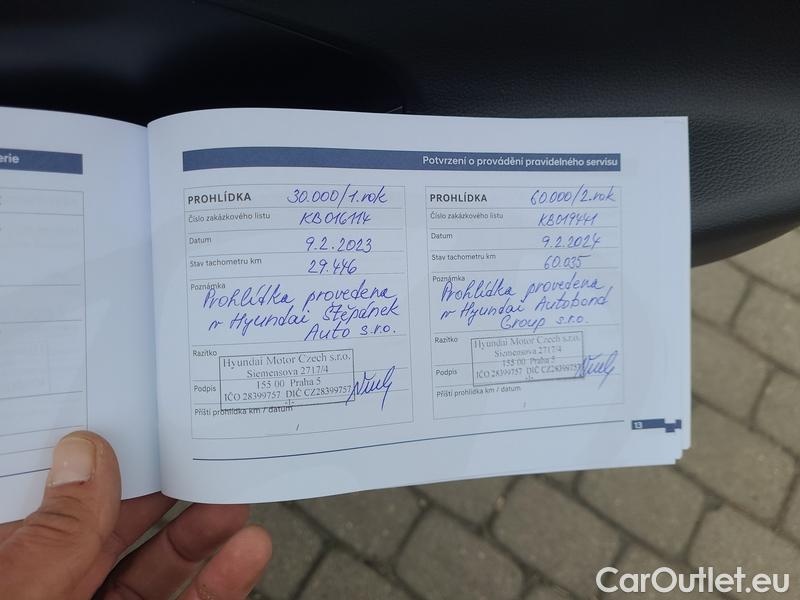 erie
Potvrzení o provádění pravidelného servisu
PROHLÍDKA 30.000/1.rok
Číslo zakázkového listu KB016114
Datum 9.2.2023
Stav tachometru km 29.446
Poznámka
Prohlídka provedena
v Hyundai Štěpánek
Auto s.r.o.
Razítko
Hyundai Motor Czech s.r.o.
Siemensova 2717/4
155 00 Praha 5
Podpis
IČO 28399757 DIČ CZ28399757
-1-
Příští prohlídka km / datum
/
PROHLÍDKA 60.000/2.rok
Číslo zakázkového listu KB019441
Datum 9.2.2024
Stav tachometru km 60.035
Poznámka
Prohlídka provedena
v Hyundai Autobond
Group s.r.o.
Razítko
Hyundai Motor Czech s.r.o.
Siemensova 2717/4
155 00 Praha 5
Podpis
IČO 28399757 DIČ CZ28399757
-1-
Příští prohlídka km / datum
/
13
CarOutlet.eu